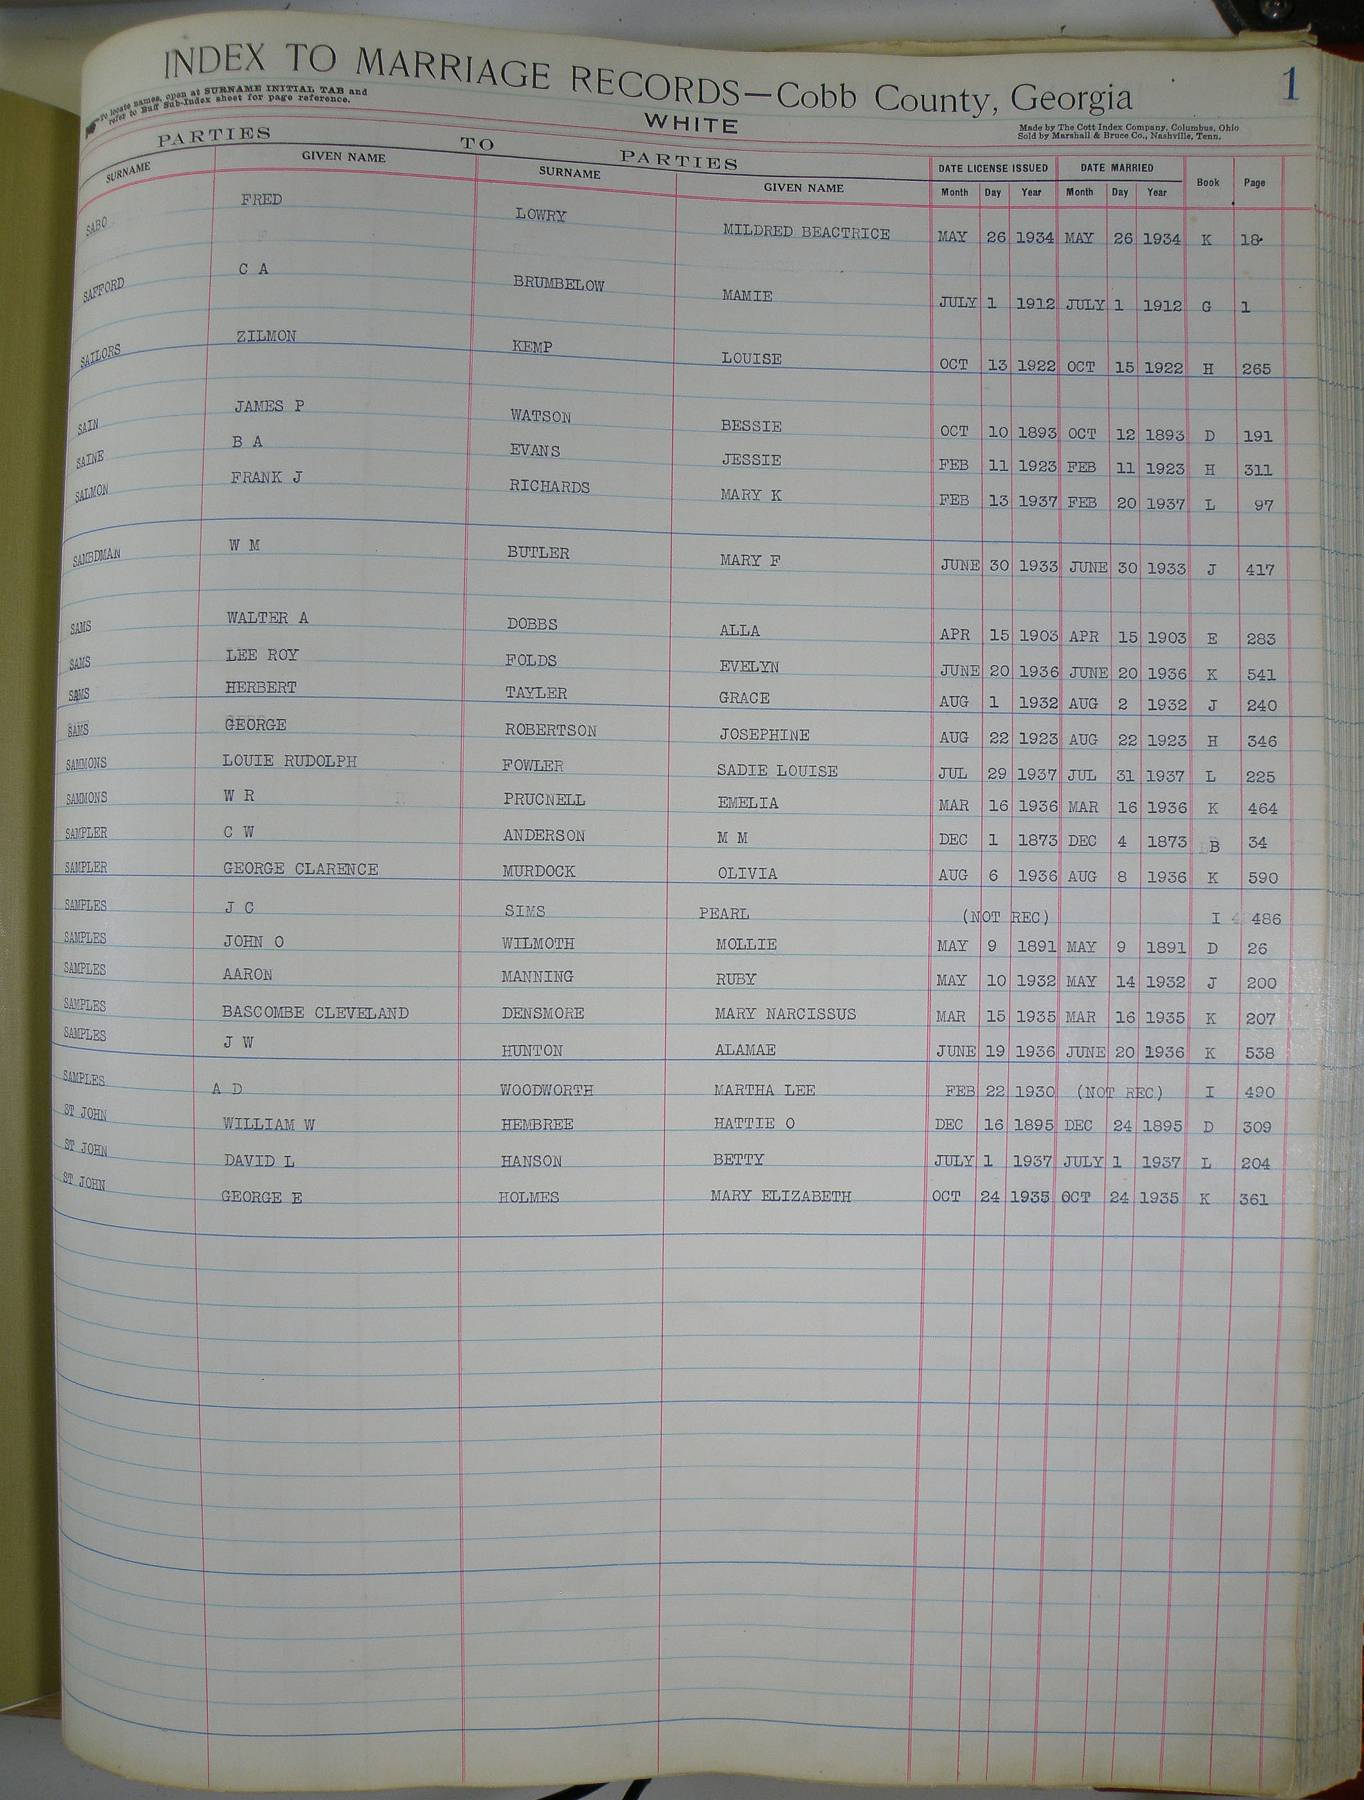 INDEX TO MARRIAGE RECORDS—Cobb County, Georgia 1
To locate names, open at SURNAME INITIAL TAB and
refer to Buff Sub-Index sheet for page reference.
WHITE
Made by The Cott Index Company, Columbus, Ohio
Sold by Marshall & Bruce Co., Nashville, Tenn.
PARTIES TO PARTIES
SURNAME GIVEN NAME SURNAME GIVEN NAME DATE LICENSE ISSUED DATE MARRIED Book Page
Month Day Year Month Day Year
SABO FRED LOWRY MILDRED BEACTRICE MAY 26 1934 MAY 26 1934 K 18
SAFFORD C A BRUMBELOW MAMIE JULY 1 1912 JULY 1 1912 G 1
SAILORS ZILMON KEMP LOUISE OCT 13 1922 OCT 15 1922 H 265
SAIN JAMES P WATSON BESSIE OCT 10 1893 OCT 12 1893 D 191
SAINE B A EVANS JESSIE FEB 11 1923 FEB 11 1923 H 311
SALMON FRANK J RICHARDS MARY K FEB 13 1937 FEB 20 1937 L 97
SAMBDMAN W M BUTLER MARY F JUNE 30 1933 JUNE 30 1933 J 417
SAMS WALTER A DOBBS ALLA APR 15 1903 APR 15 1903 E 283
SAMS LEE ROY FOLDS EVELYN JUNE 20 1936 JUNE 20 1936 K 541
SAMS HERBERT TAYLER GRACE AUG 1 1932 AUG 2 1932 J 240
SAMS GEORGE ROBERTSON JOSEPHINE AUG 22 1923 AUG 22 1923 H 346
SAMMONS LOUIE RUDOLPH FOWLER SADIE LOUISE JUL 29 1937 JUL 31 1937 L 225
SAMMONS W R PRUCNELL EMELIA MAR 16 1936 MAR 16 1936 K 464
SAMPLER C W ANDERSON M M DEC 1 1873 DEC 4 1873 B 34
SAMPLER GEORGE CLARENCE MURDOCK OLIVIA AUG 6 1936 AUG 8 1936 K 590
SAMPLES J C SIMS PEARL (NOT REC) I 486
SAMPLES JOHN O WILMOTH MOLLIE MAY 9 1891 MAY 9 1891 D 26
SAMPLES AARON MANNING RUBY MAY 10 1932 MAY 14 1932 J 200
SAMPLES BASCOMBE CLEVELAND DENSMORE MARY NARCISSUS MAR 15 1935 MAR 16 1935 K 207
SAMPLES J W HUNTON ALAMAE JUNE 19 1936 JUNE 20 1936 K 538
SAMPLES A D WOODWORTH MARTHA LEE FEB 22 1930 (NOT REC) I 490
ST JOHN WILLIAM W HEMBREE HATTIE O DEC 16 1895 DEC 24 1895 D 309
ST JOHN DAVID L HANSON BETTY JULY 1 1937 JULY 1 1937 L 204
ST JOHN GEORGE E HOLMES MARY ELIZABETH OCT 24 1935 OCT 24 1935 K 361